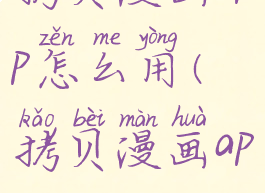 zěn me yòng
p怎么用(
kǎo bèi màn huà
拷贝漫画ap